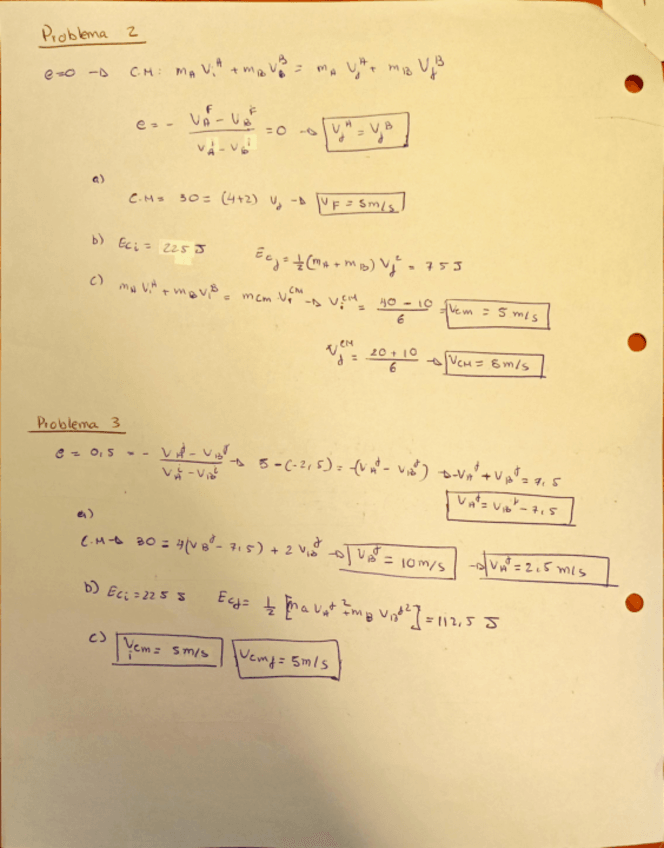 Problema 2
e=0 → C.M: mA Vi^A + mB V_B^B = mA Vf^A + mB Vf^B
e = - (VA^F - VB^F) / (VA^i - VB^i) = 0 → Vf^A = Vf^B
a)
C.M = 30 = (4+2) Vf → VF = 5m/s
b) Eci = 225 J Ecf = 1/2 (mA + mB) Vf^2 = 75 J
c) mA Vi^A + mB Vi^B = mcm Vi^CM → Vi^CM = (40 - 10) / 6 = Vcm = 5 m/s
Vf^CM = (20 + 10) / 6 → VCM = 5m/s
Problema 3
e = 0,5 = - (VA^f - VB^f) / (VA^i - VB^i) → 5-(-2,5) = -(VA^f - VB^f) → -VA^f + VB^f = 7,5
VA^f = VB^f - 7,5
a)
C.M → 30 = 4(VB^f - 7,5) + 2 VB^f → VB^f = 10m/s → VA^f = 2,5 m/s
b) Eci = 225 J Ecf = 1/2 [ma VA^f^2 + mB VB^f^2] = 112,5 J
c) Vicm = 5m/s Vcmf = 5m/s